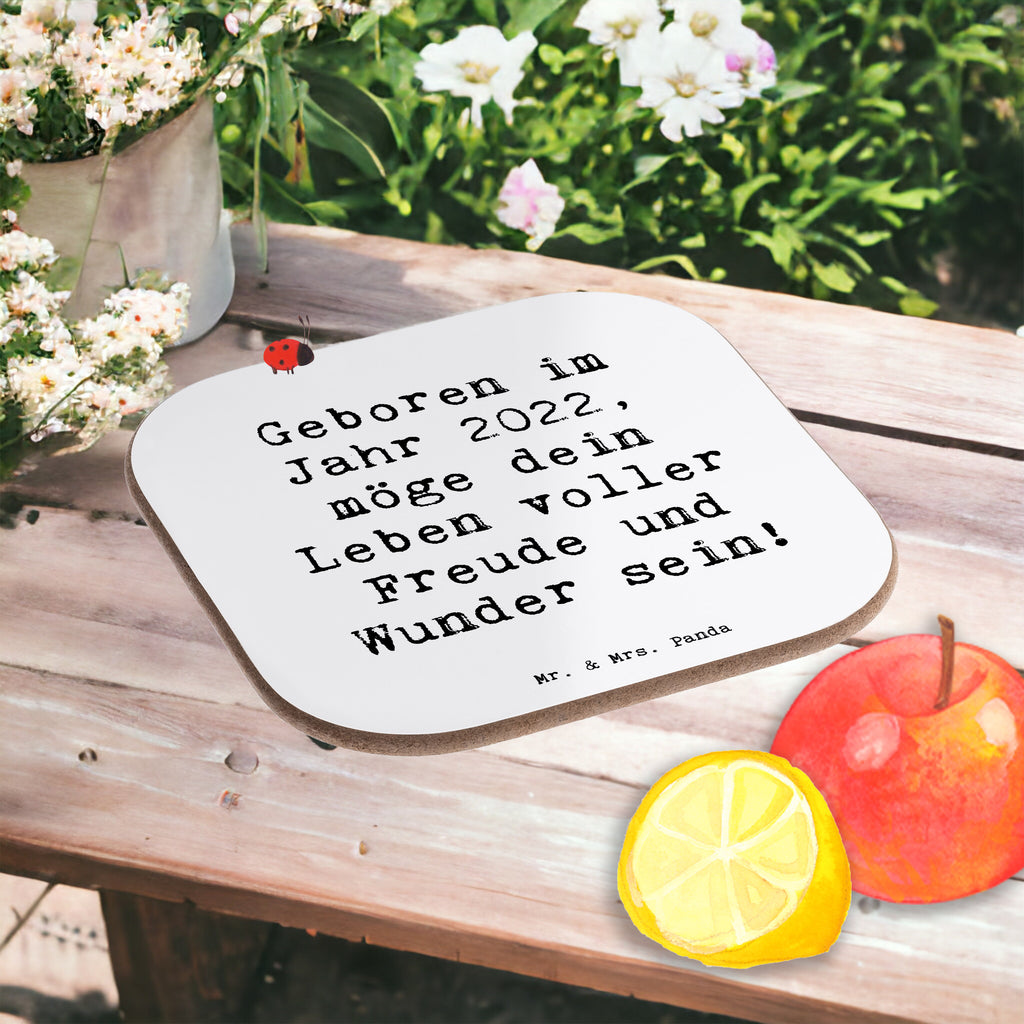 Geboren im
Jahr 2022,
möge dein
Leben voller
Freude und
Wunder sein!
Mr. & Mrs. Panda